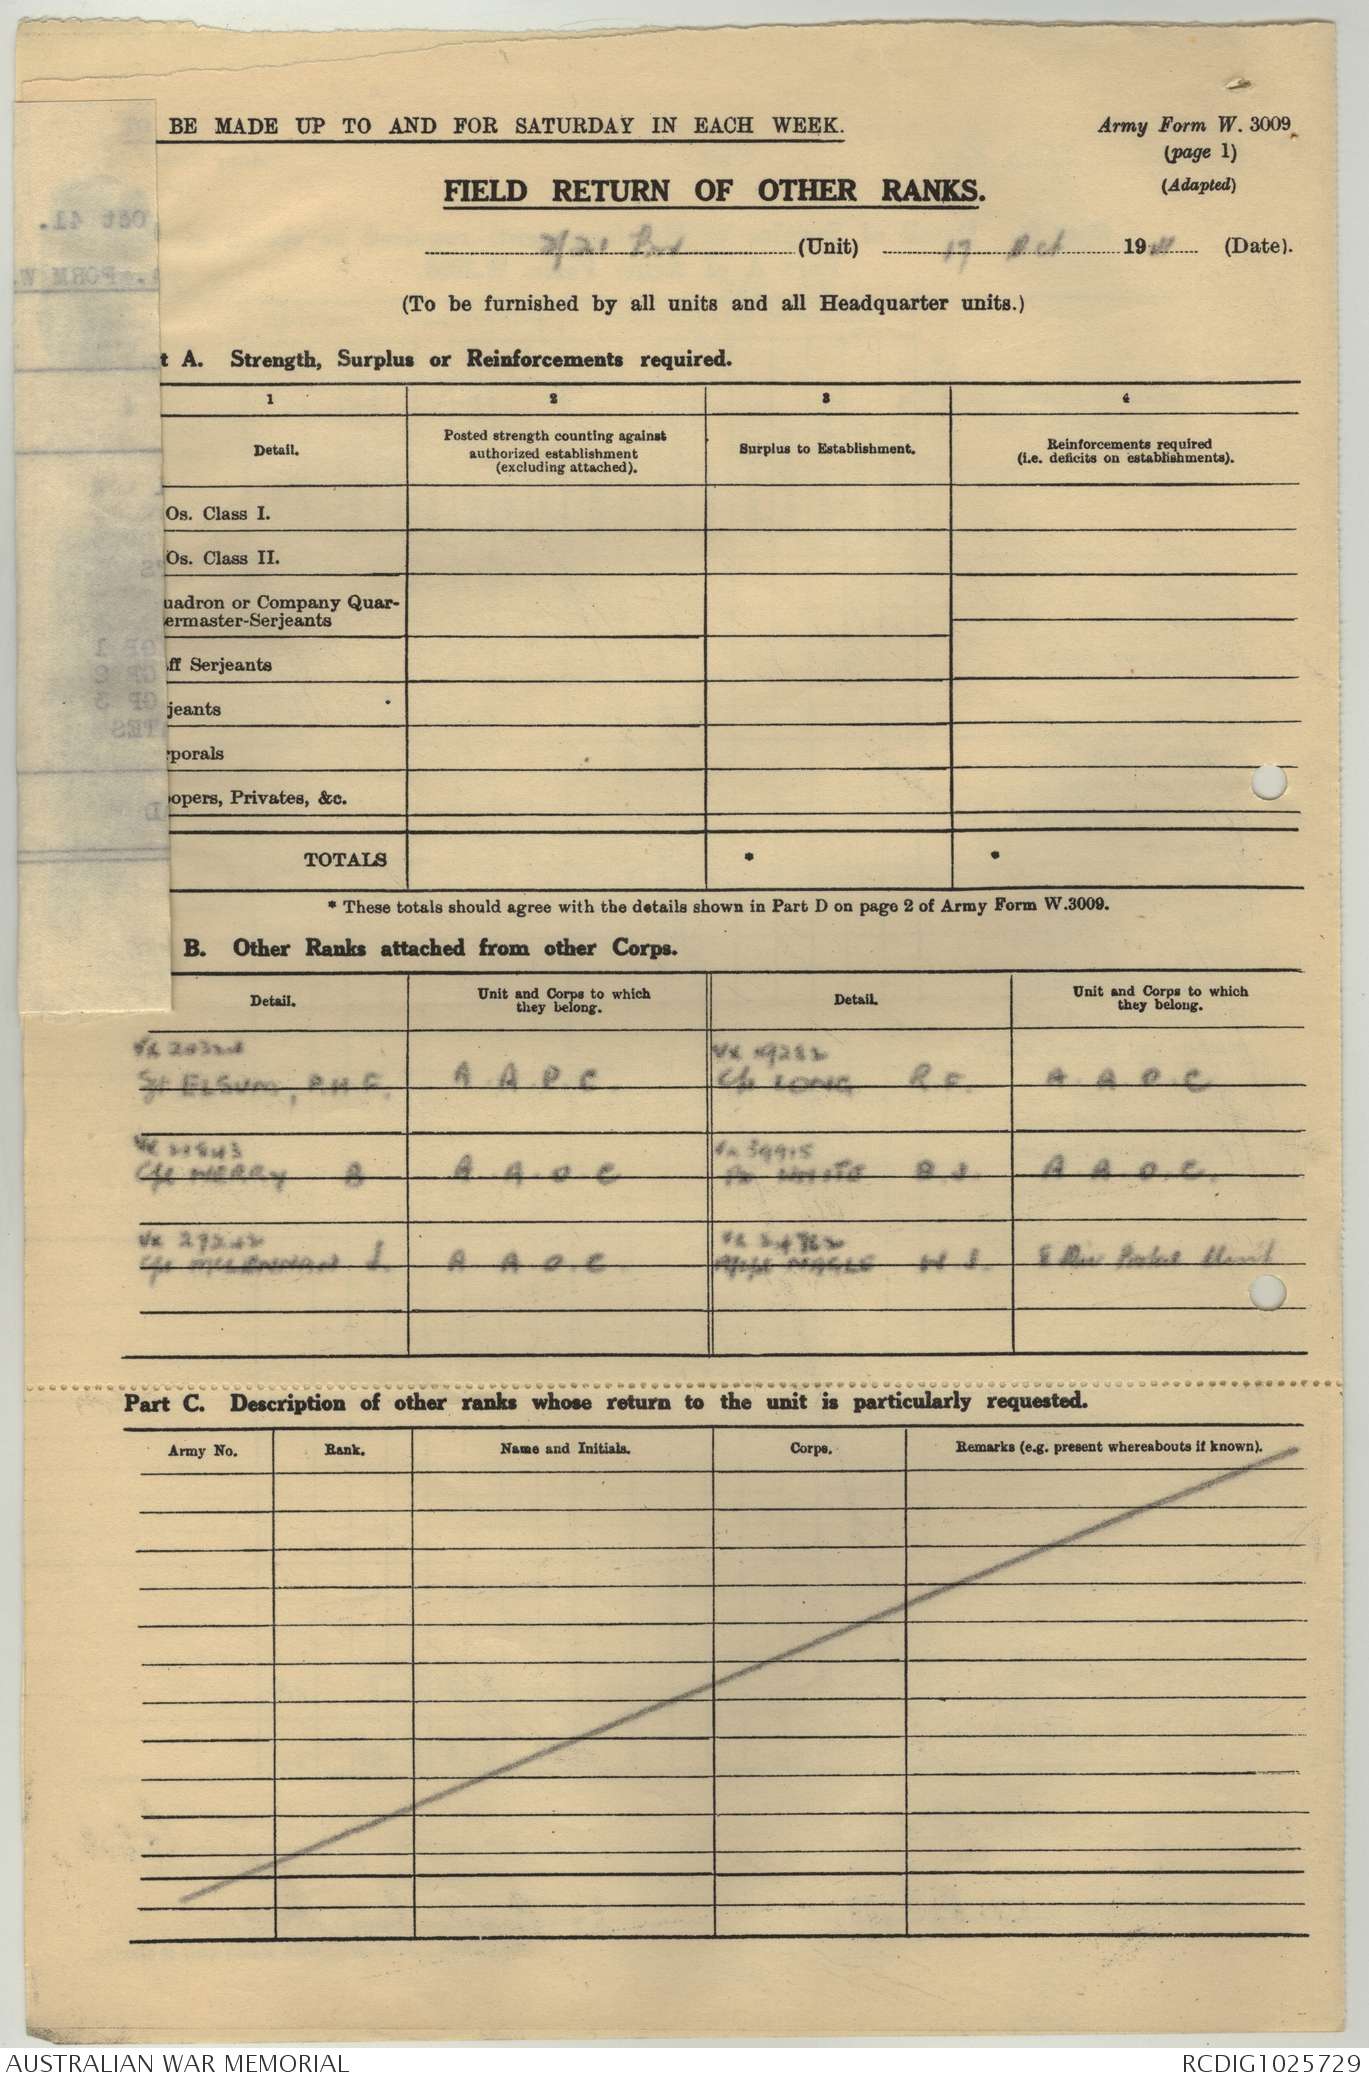 BE MADE UP TO AND FOR SATURDAY IN EACH WEEK.
Army Form W. 3009
(page 1)
(Adapted)
FIELD RETURN OF OTHER RANKS.
2/21 (Unit) 17 Oct 1941 (Date).
(To be furnished by all units and all Headquarter units.)
t A. Strength, Surplus or Reinforcements required.
1 2 3 4
Detail.
Posted strength counting against
authorized establishment
(excluding attached).
Surplus to Establishment.
Reinforcements required
(i.e. deficits on establishments).
Os. Class I.
Os. Class II.
uadron or Company Quar-
ermaster-Serjeants
ff Serjeants
jeants
rporals
oopers, Privates, &c.
TOTALS * *
* These totals should agree with the details shown in Part D on page 2 of Army Form W.3009.
B. Other Ranks attached from other Corps.
Detail.
Unit and Corps to which
they belong.
Detail.
Unit and Corps to which
they belong.
ELSUM, P.H.F. A A P C LONG R.F. A A O C
MERRY B A A O C WHITE B.J. A A O C.
VX 39915
McLENNAN J. A A O C NAGLE W J. 8 Div Postal Unit
Part C. Description of other ranks whose return to the unit is particularly requested.
Army No. Rank. Name and Initials. Corps. Remarks (e.g. present whereabouts if known).
Oct 41.
FORM W.
GP 1
GP 2
GP 3
AUSTRALIAN WAR MEMORIAL
RCDIG1025729